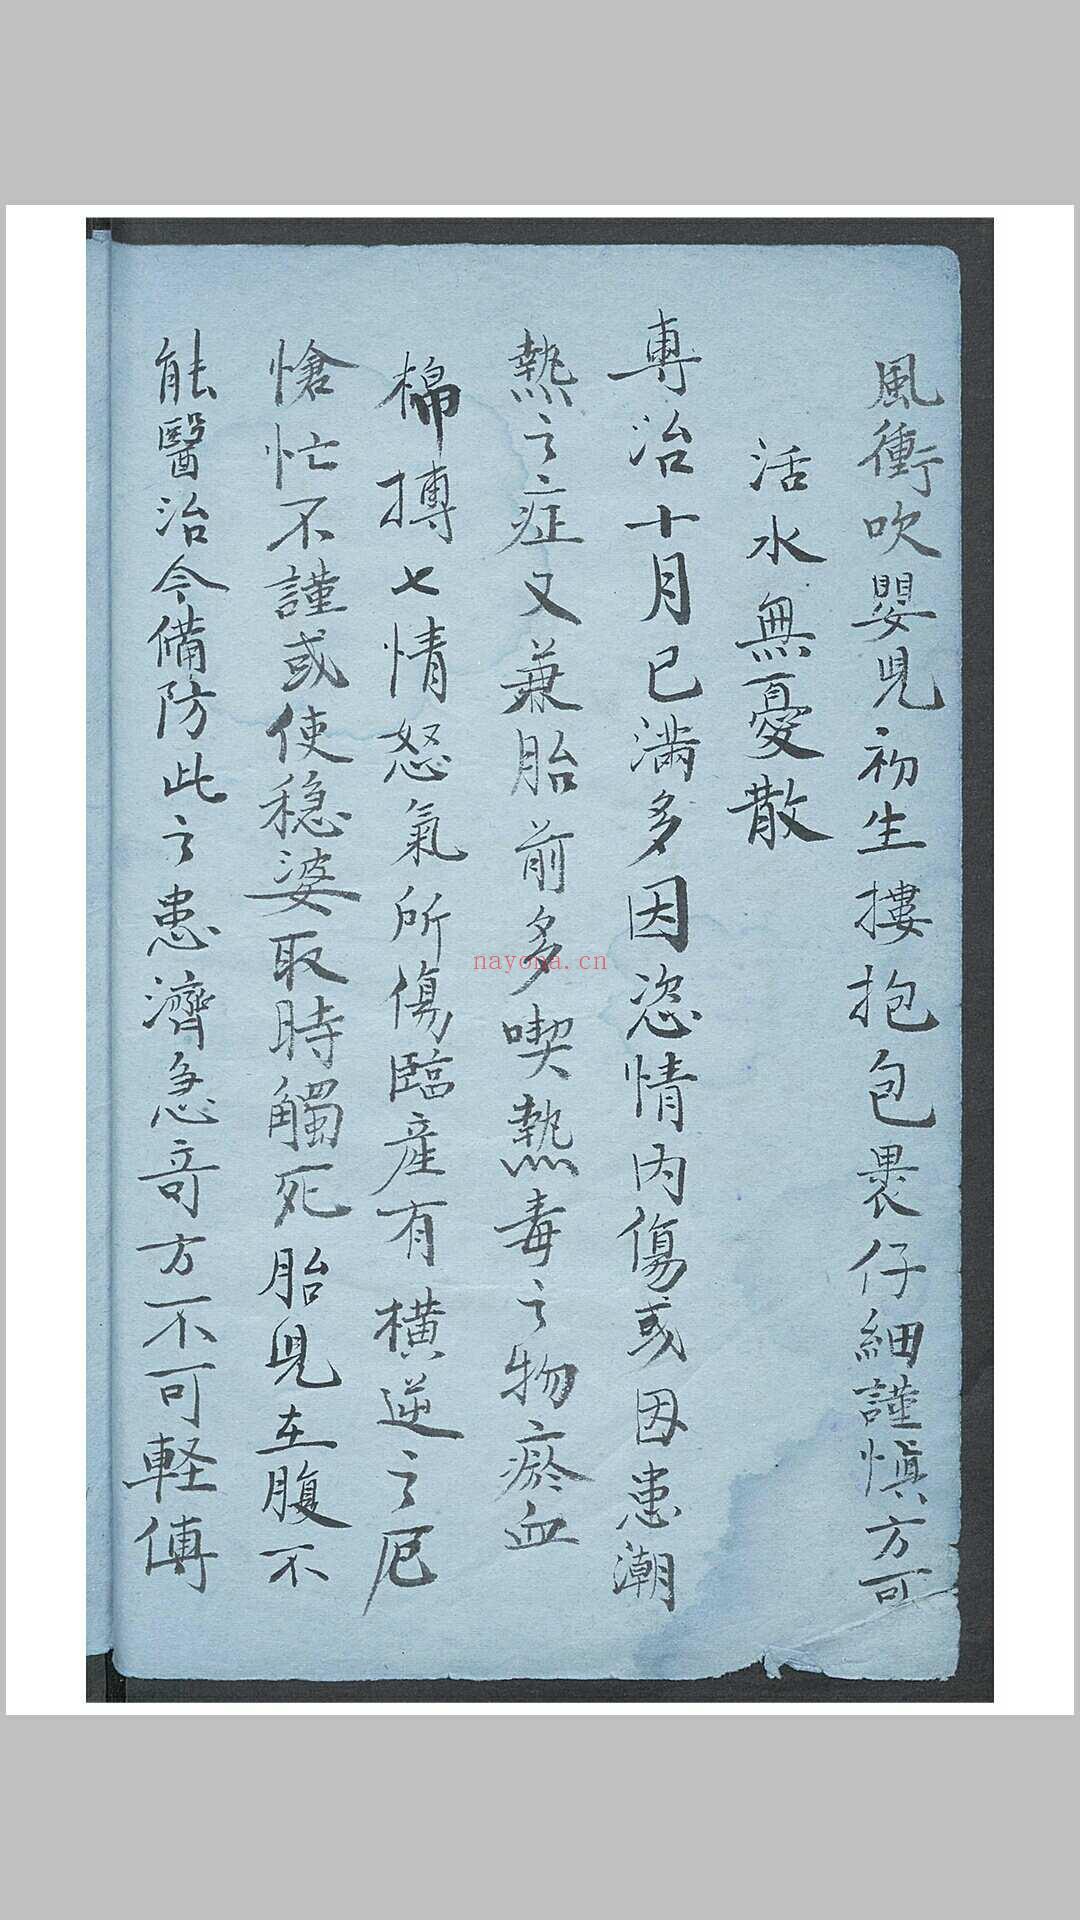 風衝吹嬰児初生摟抱包裹仔細謹慎方可
活水無憂散
專治十月已滿多因恣情内傷或因患潮
熱之症又兼胎前多喫熱毒之物瘀血
棉搏七情怒氣所傷臨產有橫逆之厄
愴忙不謹或使穏婆取時觸死胎児在腹不
能醫治今備防此之患濟急奇方不可軽傳
nayona.cn